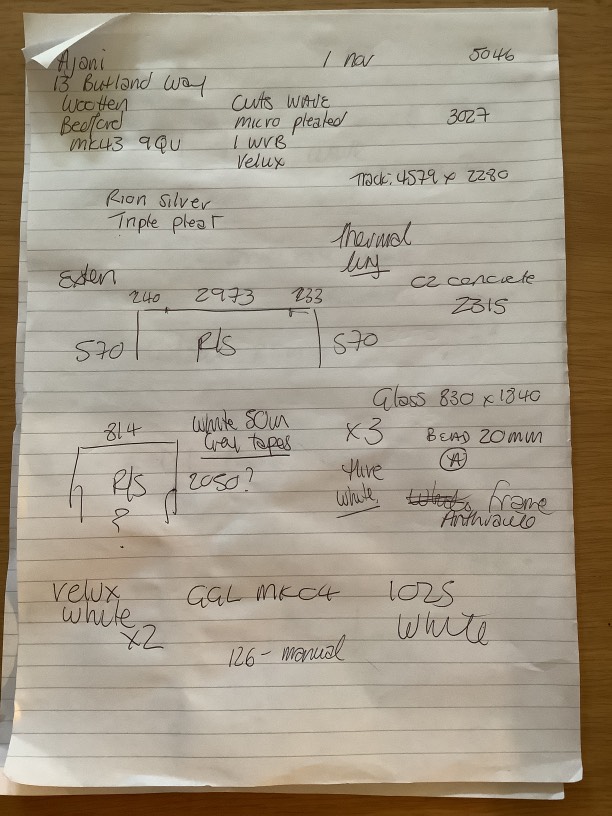 Ajani 1 nov 5046
13 Butland way
Wootten Cuts WAVE
Bedford micro pleated 3027
MK43 9QU 1 WVB
Velux
Track: 4579 x 2280
Rion Silver
Triple pleat
Thermal
Exten C2 concrete
240 2973 233 2315
570 R/S 570
Glass 830 x 1840
814 White 50m x3 BEAD 20mm
Gray tapes A
R/S 2050?
White Frame
? Anthracite
Velux GGL MK04 1025
white White
x2
126 - manual